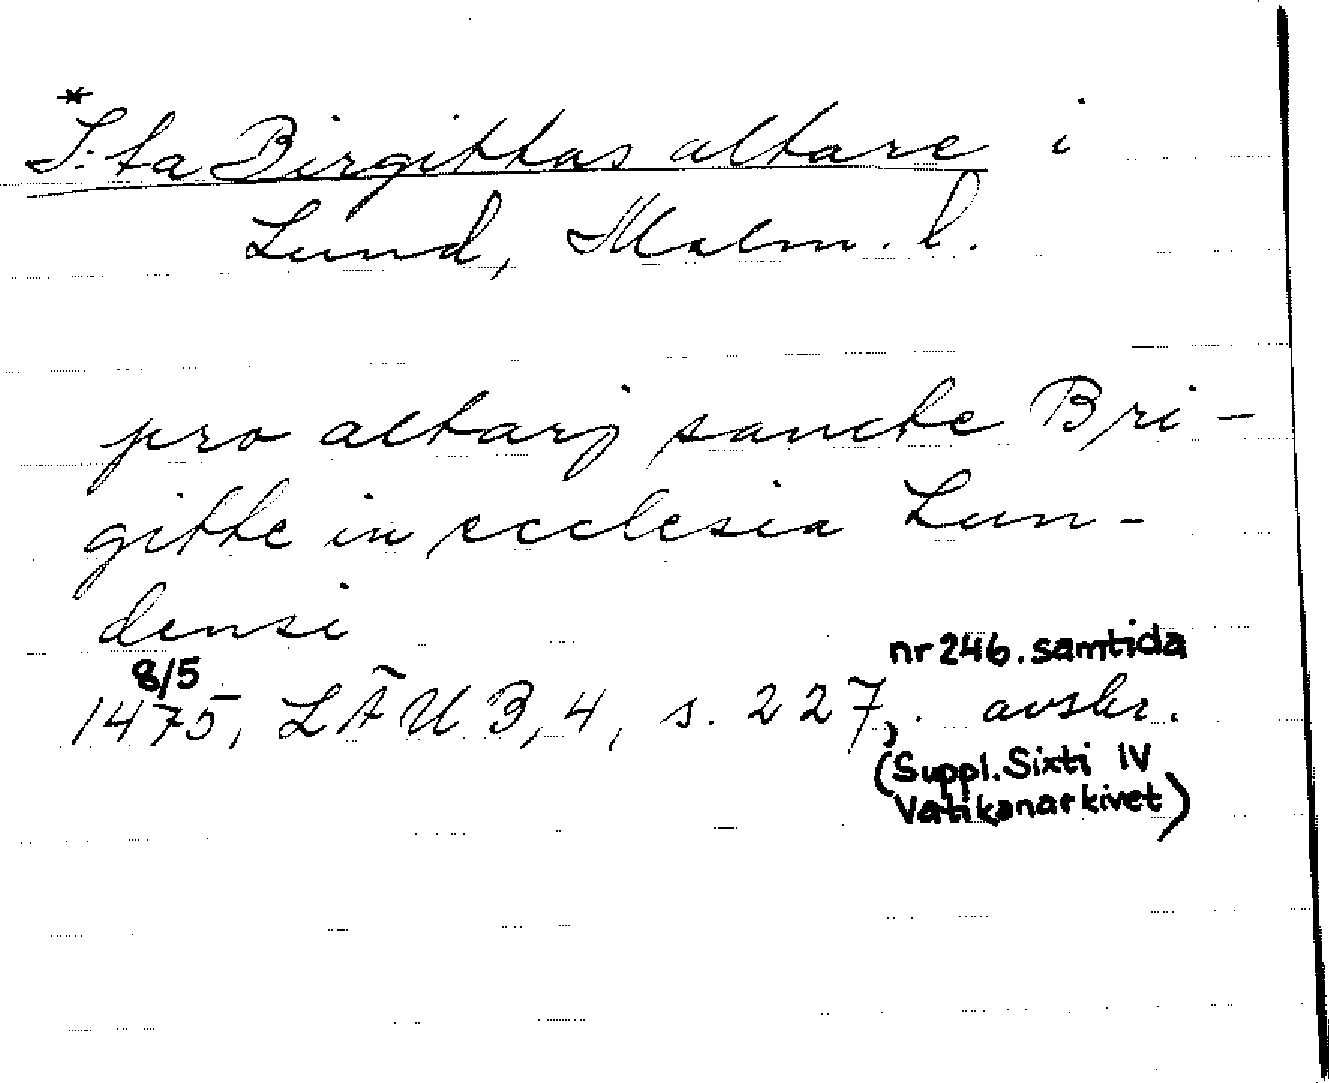 *
S:ta Birgittas altare i
Lund, Malm. l.
pro altarj sancte Bri-
gitte in ecclesia Lun-
densi
8/5 nr 246. samtida
1475, LÄU 3,4, s. 227, . avskr.
(Suppl. Sixti IV
Vatikanarkivet)